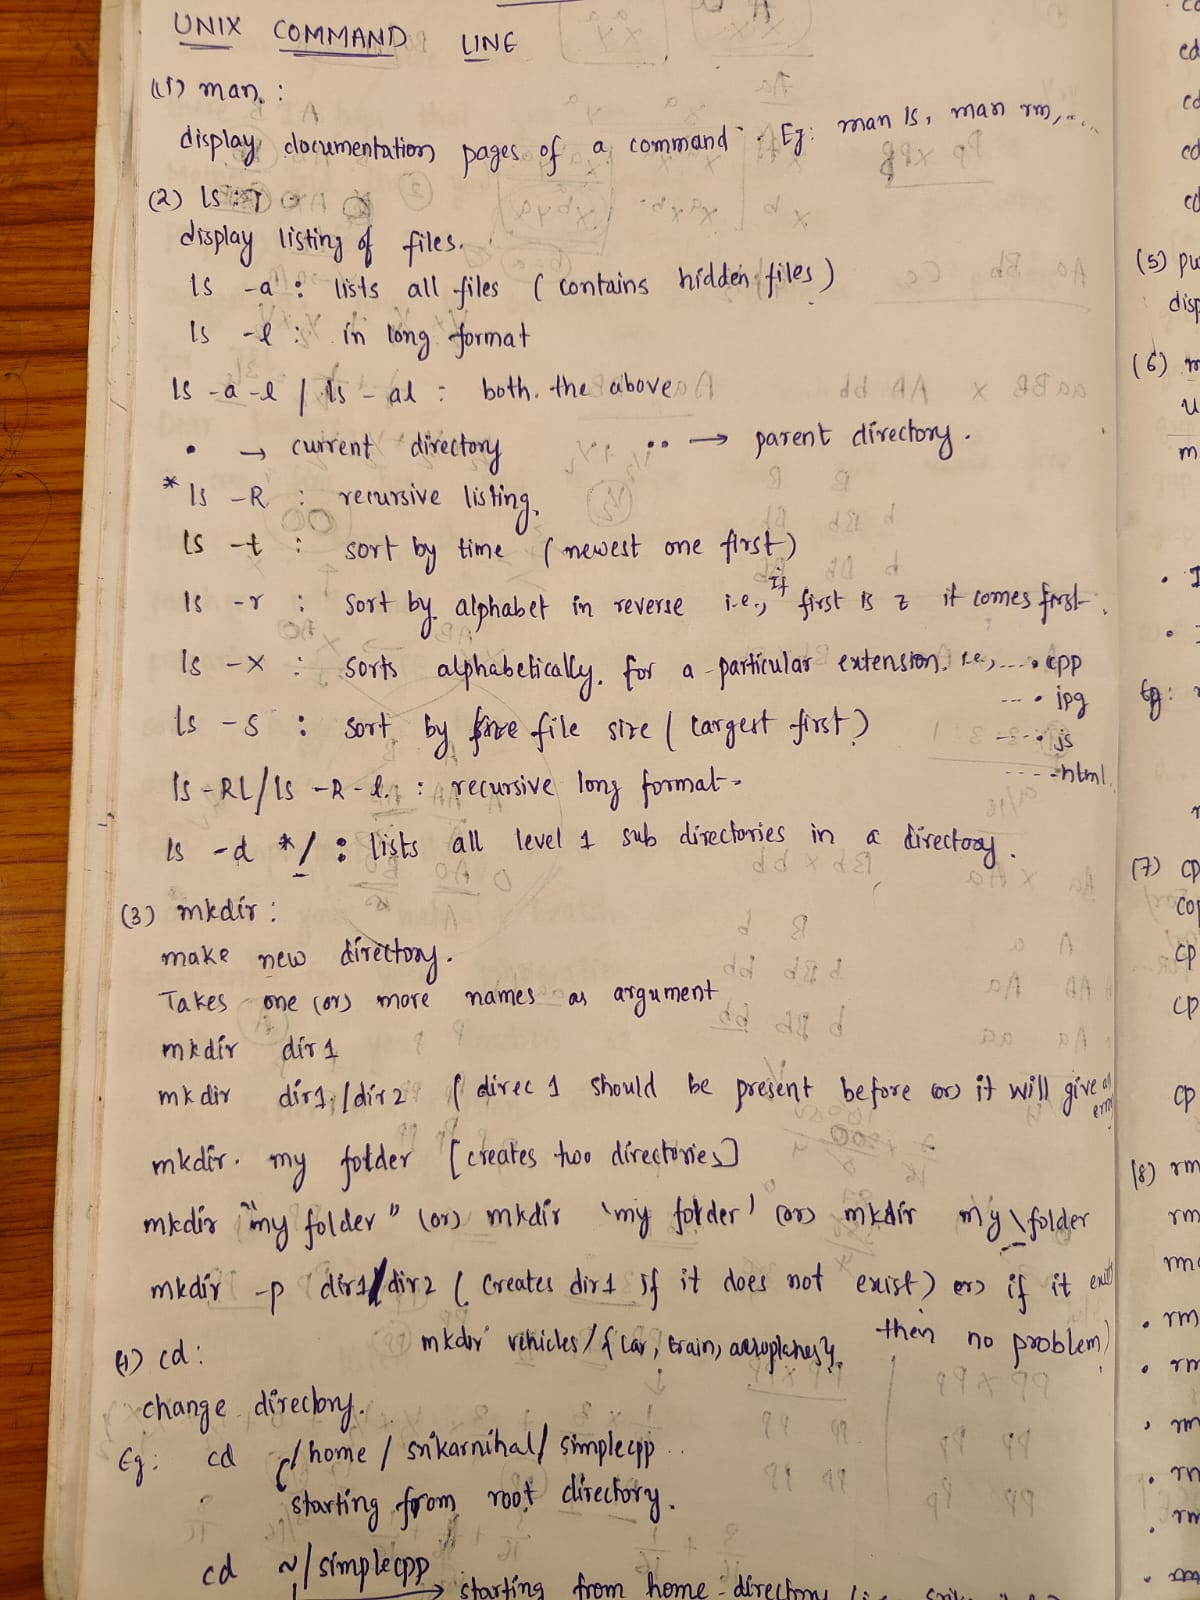 UNIX COMMAND LINE
(1) man :
display documentation pages of a command . Eg: man ls, man rm, ....
(2) ls :
display listing of files.
ls -a : lists all files (contains hidden files)
ls -l : in long format
ls -a -l / ls -al : both the above
. → current directory .. → parent directory.
* ls -R : recursive listing.
ls -t : sort by time (newest one first)
ls -r : sort by alphabet in reverse i.e., if first is z it comes first.
ls -X : sorts alphabetically for a particular extension. i.e., ....cpp
--- . jpg
--- . js
---- html.
ls -S : sort by file size (largest first)
ls -Rl/ls -R -l : recursive long format
ls -d */ : lists all level 1 sub directories in a directory.
(3) mkdir :
make new directory.
Takes one (or) more names as argument
mkdir dir1
mkdir dir1/dir2 (direc 1 should be present before (or) it will give an error
mkdir my folder [creates two directories]
mkdir "my folder" (or) mkdir 'my folder' (or) mkdir my\folder
mkdir -p dir1/dir2 (Creates dir1 if it does not exist) (or) if it exist
then no problem)
mkdir vehicles/{car, train, aeroplanes}
(4) cd :
change directory.
Eg: cd /home/srikarnihal/simplecpp
starting from root directory.
cd ~/simplecpp
starting from home directory
(5)
(6)
(7) cp
cp
cp
cp
(8) rm